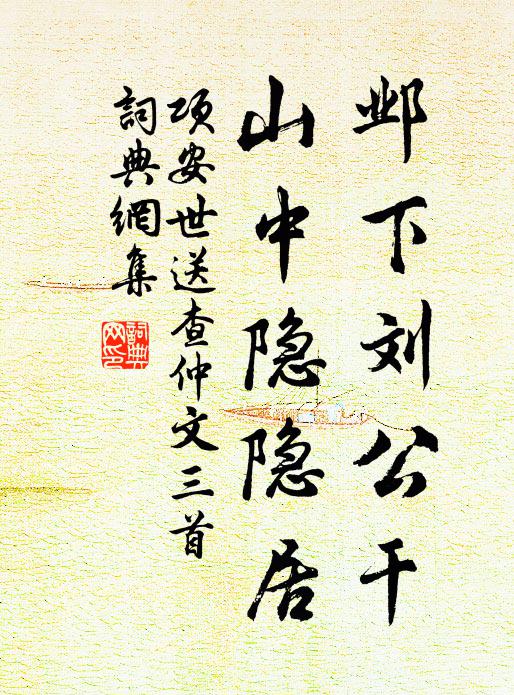 邺下刘公干
山中隐隐居
项安世送查仲文三首
詞典網集
詞典
网印